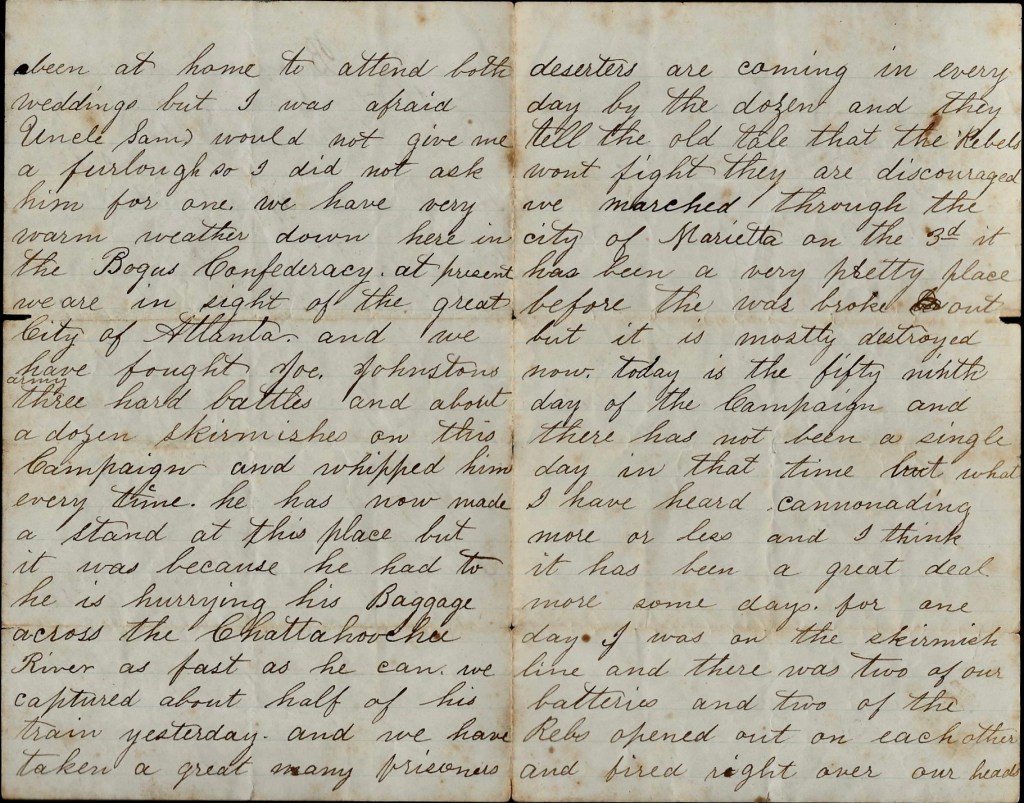 been at home to attend both
weddings but I was afraid
Uncle Sam would not give me
a furlough so I did not ask
him for one. we have very
warm weather down here in
the Bogus Confederacy. at present
we are in sight of the great
City of Atlanta. and we
have fought Joe. Johnstons
army
three hard battles and about
a dozen skirmishes on this
Campaign and whipped him
every time. he has now made
a stand at this place but
it was because he had to
he is hurrying his Baggage
across the Chattahoochee
River as fast as he can. we
captured about half of his
train yesterday. and we have
taken a great many prisoners
deserters are coming in every
day by the dozen and they
tell the old tale that the Rebels
wont fight they are discouraged
we marched through the
city of Marietta on the 3d it
has been a very pretty place
before the war broke out
but it is mostly destroyed
now. today is the fifty ninth
day of the Campaign and
there has not been a single
day in that time but what
I have heard cannonading
more or less and I think
it has been a great deal
more some days. for one
day I was on the skirmish
line and there was two of our
batteries and two of the
Rebs opened out on each other
and fired right over our heads